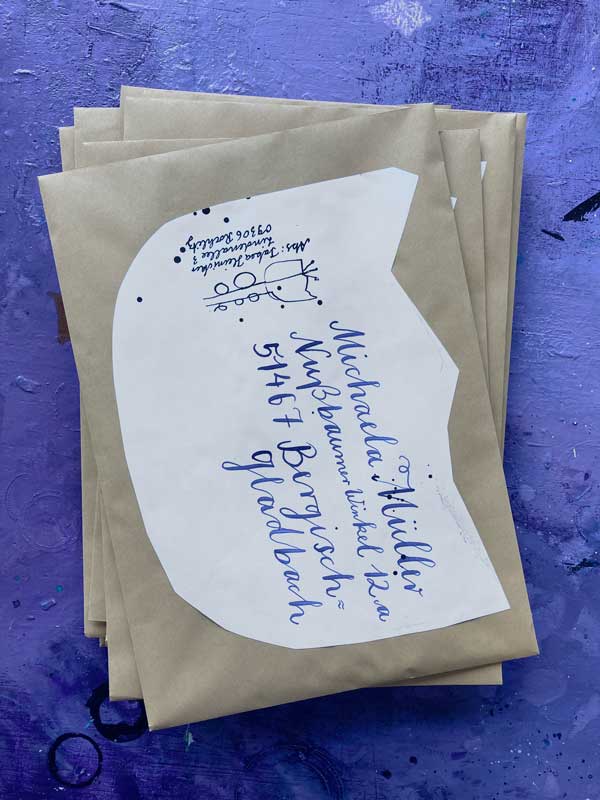 Abs: Tabea Heinicker
Lindenallee 3
09306 Rochlitz
Michaela Müller
Nußbaumer Winkel 12a
51467 Bergisch=
gladbach